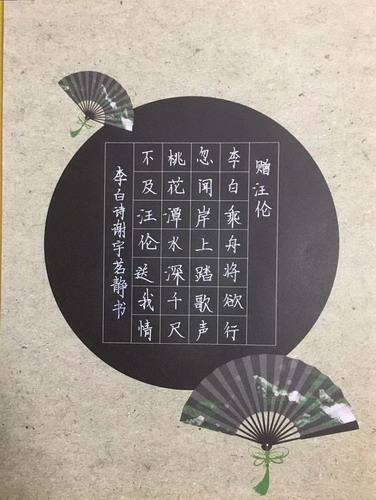 赠汪伦
李白乘舟将欲行
忽闻岸上踏歌声
桃花潭水深千尺
不及汪伦送我情
李白诗谢宇茗静书